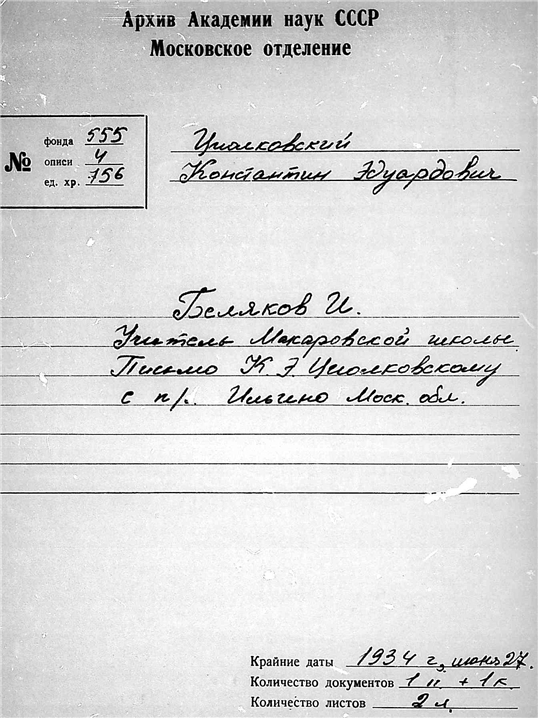 Архив Академии наук СССР
Московское отделение
№
фонда 555
описи 4
ед. хр. 156
Циолковский
Константин Эдуардович
Беляков И.
Учитель Макаровской школы.
Письмо К. Э. Циолковскому
с п/. Ильгино Моск. обл.
Крайние даты 1934 г, июня 27.
Количество документов 1 п. + 1 к.
Количество листов 2 л.